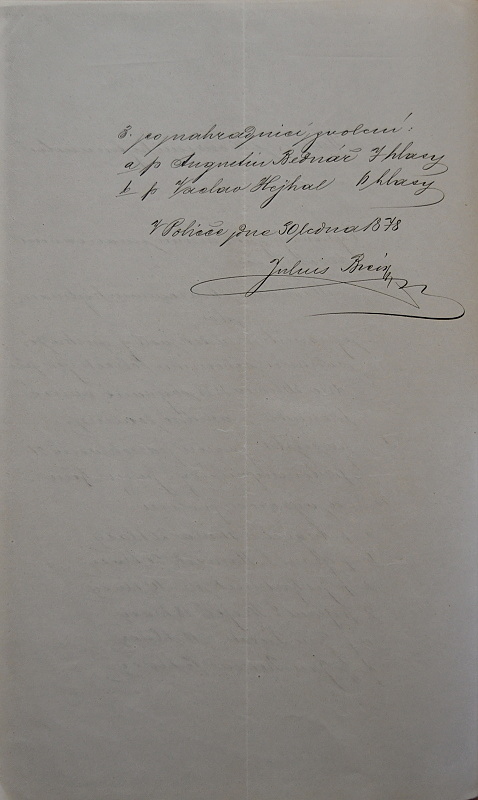 3. po nahradníci zvoleni:
a, p Augustin Bednář 7 hlasy
b, p Vaclav Hejhal 6 hlasy
V Poličce dne 30 ledna 1878
Julius